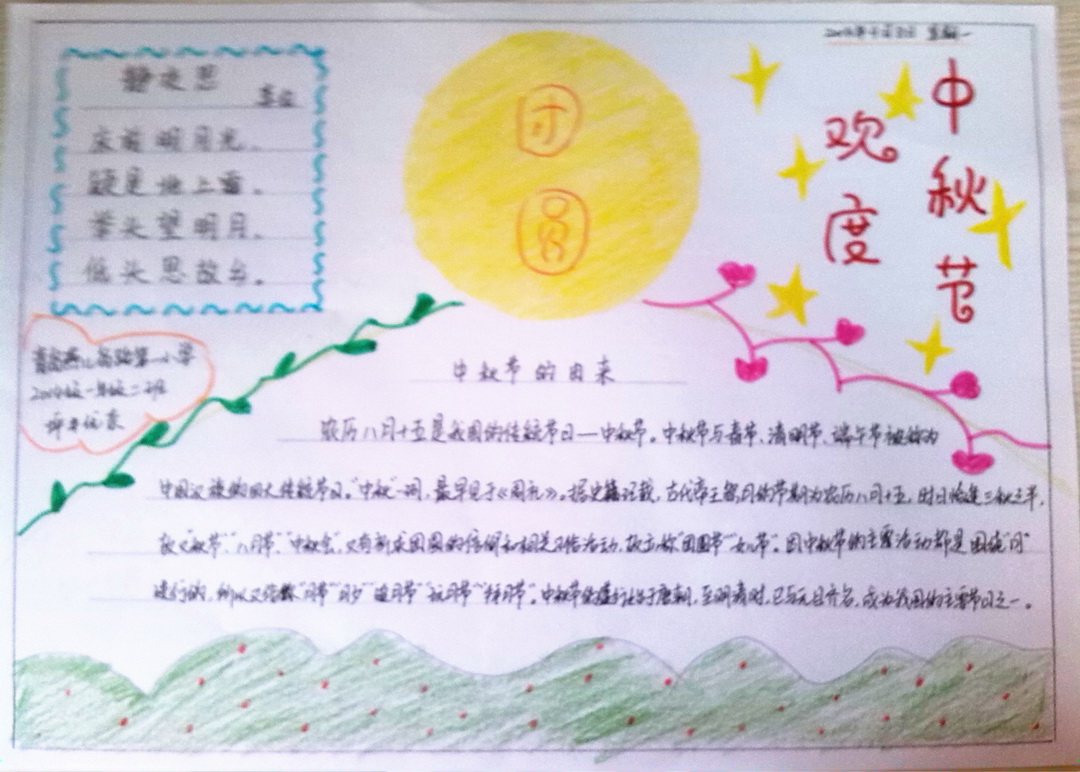 静夜思
李白
床前明月光。
疑是地上霜。
举头望明月。
低头思故乡。
团圆
欢度
中秋节
第一小学
一年级二班
中秋节的由来
农历八月十五是我国的传统节日——中秋节。中秋节与春节、清明节、端午节被称为
中国汉族的四大传统节日。"中秋"一词，最早见于《周礼》。据史籍记载，古代帝王祭月的节期为农历八月十五，时日恰逢三秋之半，
故又"秋节""八月节""中秋会"，又有祈求团圆的信仰和相关习俗活动，故亦称"团圆节""女儿节"。因中秋节的主要活动都是围绕"月"
进行的，所以又俗称"月节""月夕""追月节""玩月节""拜月节"。中秋节的盛行始于唐朝，至明清时，已与元旦齐名，成为我国的主要节日之一。